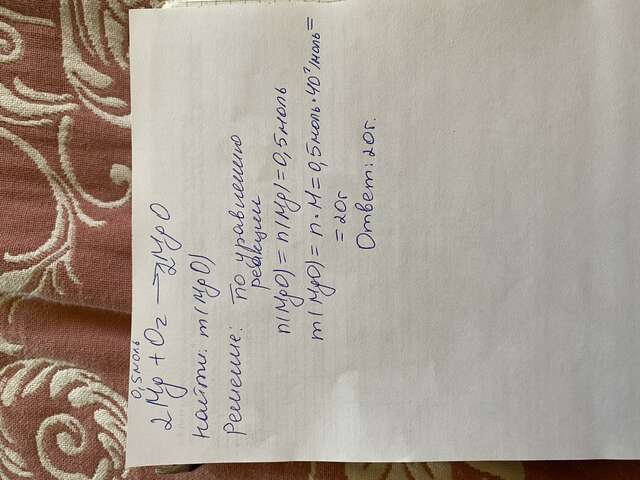 0,5 моль
2Mg + O₂ → 2MgO
Найти: m(MgO)
Решение: по уравнению
реакции
n(MgO) = n(Mg) = 0,5 моль
m(MgO) = n · M = 0,5 моль · 40 г/моль =
= 20 г
Ответ: 20 г.